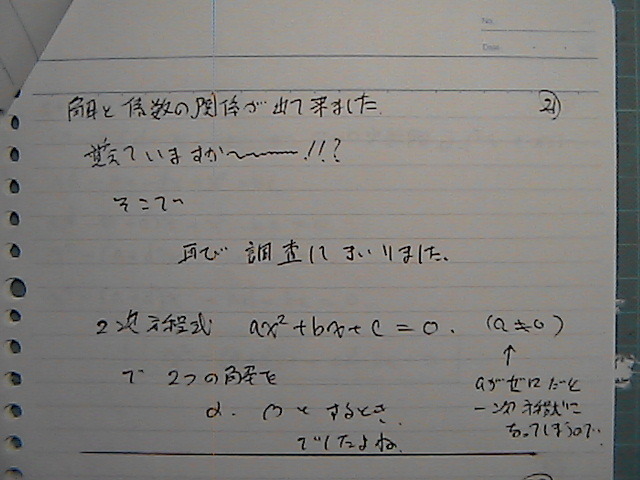 No.
Date
21
解と係数の関係が出て来ました.
覚えていますか〜〜!!?
そこで
再び 調査してまいりました.
2次方程式 ax²+bx+c=0. (a≠0)
↑
で 2つの解を
aがゼロだと
α. βとするとき
一次方程式に
なってしまうので.
でしたよね.